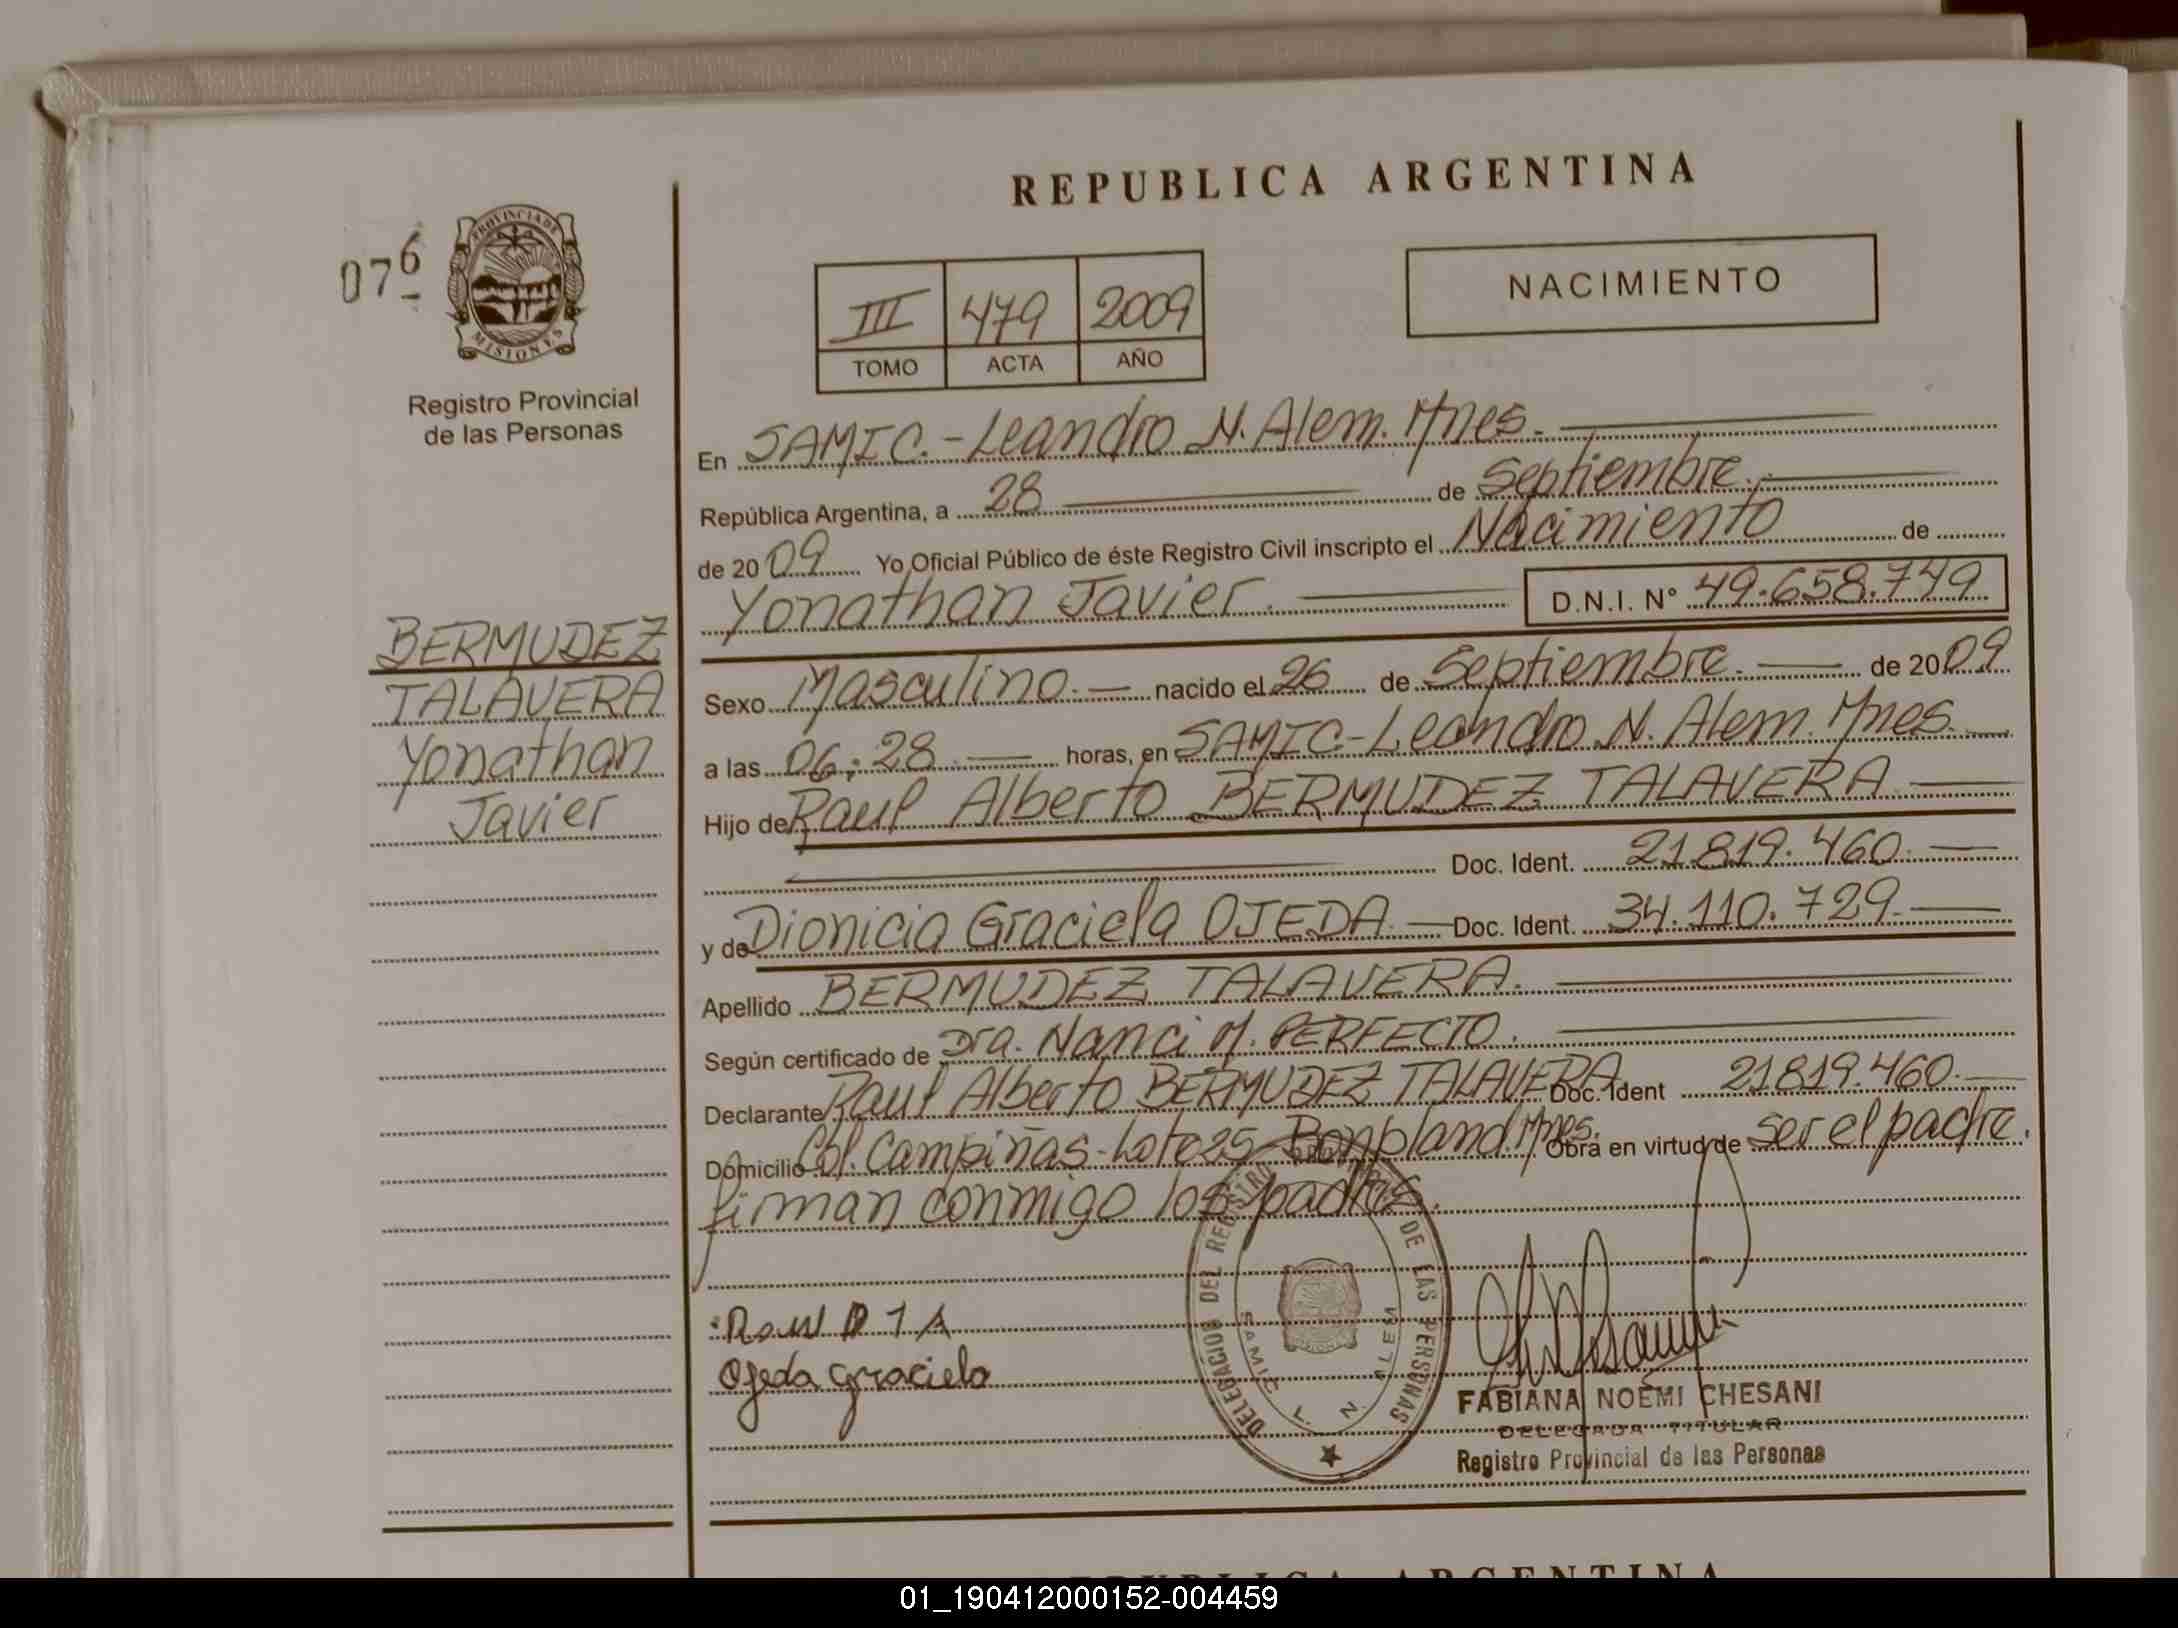 REPUBLICA ARGENTINA
076
PROVINCIA DE MISIONES
Registro Provincial
de las Personas
III 479 2009
TOMO ACTA AÑO
NACIMIENTO
BERMUDEZ
TALAVERA
Yonathan
Javier
En SAMIC.-Leandro N. Alem. Mnes.
República Argentina, a 28 de Septiembre.
de 2009 Yo Oficial Público de éste Registro Civil inscripto el Nacimiento de
Yonathan Javier. D.N.I. N° 49.658.749
Sexo Masculino. nacido el 26 de Septiembre. de 2009
a las 06:28 horas, en SAMIC-Leandro N. Alem. Mnes.
Hijo de Raul Alberto BERMUDEZ TALAVERA
Doc. Ident. 21.819.460.
y de Dionicia Graciela OJEDA. Doc. Ident. 34.110.729.
Apellido BERMUDEZ TALAVERA.
Según certificado de Dra. Nanci M. PERFECTO.
Declarante Raul Alberto BERMUDEZ TALAVERA Doc. Ident 21.819.460.
Domicilio Col. Campiñas-Lote 25 Bonpland. Mnes. Obra en virtud de ser el padre.
firman conmigo los padres.
Ojeda graciela
DELEGACION DEL REGISTRO DE LAS PERSONAS
SAMIC L. N. ALEM
FABIANA NOEMI CHESANI
DELEGADA TITULAR
Registro Provincial de las Personas
REPUBLICA ARGENTINA
01_190412000152-004459